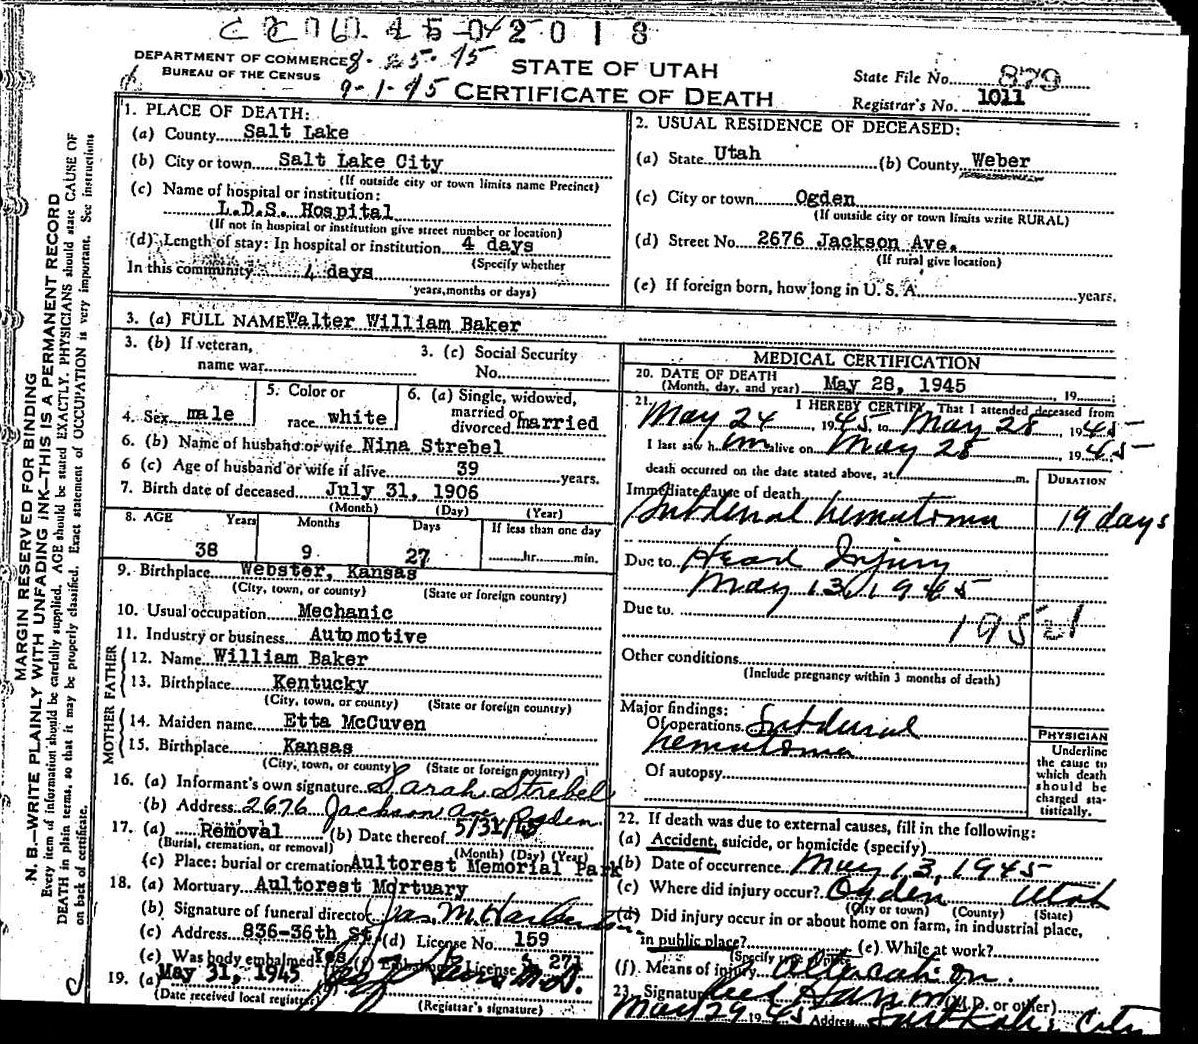 2018
DEPARTMENT OF COMMERCE 8-25-45
BUREAU OF THE CENSUS
9-1-45
STATE OF UTAH
CERTIFICATE OF DEATH
State File No. 879
Registrar's No. 1011
MARGIN RESERVED FOR BINDING
N. B.—WRITE PLAINLY WITH UNFADING INK—THIS IS A PERMANENT RECORD
Every item of information should be carefully supplied. AGE should be stated EXACTLY. PHYSICIANS should state CAUSE OF
DEATH in plain terms, so that it may be properly classified. Exact statement of OCCUPATION is very important. See instructions
on back of certificate.
1. PLACE OF DEATH:
(a) County Salt Lake
(b) City or town Salt Lake City
(If outside city or town limits name Precinct)
(c) Name of hospital or institution:
L.D.S. Hospital
(If not in hospital or institution give street number or location)
(d) Length of stay: In hospital or institution 4 days
(Specify whether
In this community 4 days
years, months or days)
2. USUAL RESIDENCE OF DECEASED:
(a) State Utah (b) County Weber
(c) City or town Ogden
(If outside city or town limits write RURAL)
(d) Street No. 2676 Jackson Ave.
(If rural give location)
(e) If foreign born, how long in U. S. A. years.
3. (a) FULL NAME Walter William Baker
3. (b) If veteran,
name war
3. (c) Social Security
No.
4. Sex male
5. Color or
race white
6. (a) Single, widowed,
married or
divorced married
6. (b) Name of husband or wife Nina Strebel
6 (c) Age of husband or wife if alive 39 years.
7. Birth date of deceased July 31, 1906
(Month) (Day) (Year)
8. AGE Years Months Days If less than one day
38 9 27 hr. min.
9. Birthplace Webster, Kansas
(City, town, or county) (State or foreign country)
10. Usual occupation Mechanic
11. Industry or business Automotive
FATHER
12. Name William Baker
13. Birthplace Kentucky
(City, town, or county) (State or foreign country)
MOTHER
14. Maiden name Etta McCuven
15. Birthplace Kansas
(City, town, or county) (State or foreign country)
16. (a) Informant's own signature Sarah Strebel
(b) Address 2676 Jackson Ave Ogden
17. (a) Removal (b) Date thereof 5/31/45
(Burial, cremation, or removal) (Month) (Day) (Year)
(c) Place: burial or cremation Aultorest Memorial Park
18. (a) Mortuary Aultorest Mortuary
(b) Signature of funeral director Jas M
(c) Address 836-36th St. (d) License No. 159
(e) Was body embalmed Yes (f) Embalmer's License 271
19. (a) May 31, 1945 M.D.
(Date received local register) (Registrar's signature)
MEDICAL CERTIFICATION
20. DATE OF DEATH
(Month, day, and year) May 28, 1945 19
21. I HEREBY CERTIFY, That I attended deceased from
May 24, 1945, to May 28, 1945
I last saw him alive on May 28 1945
death occurred on the date stated above, at m.
DURATION
Immediate cause of death
Subdural hematoma 19 days
Due to Head Injury
May 13, 1945
Due to
Other conditions
(Include pregnancy within 3 months of death)
Major findings:
Of operations Subdural
hematoma
Of autopsy
PHYSICIAN
Underline
the cause to
which death
should be
charged sta-
tistically.
22. If death was due to external causes, fill in the following:
(a) Accident, suicide, or homicide (specify)
(b) Date of occurrence May 13, 1945
(c) Where did injury occur? Ogden Utah
(City or town) (County) (State)
(d) Did injury occur in or about home on farm, in industrial place,
in public place? (e) While at work?
(f) Means of injury Altercation.
23. Signature (M.D. or other)
May 29 1945 Address City